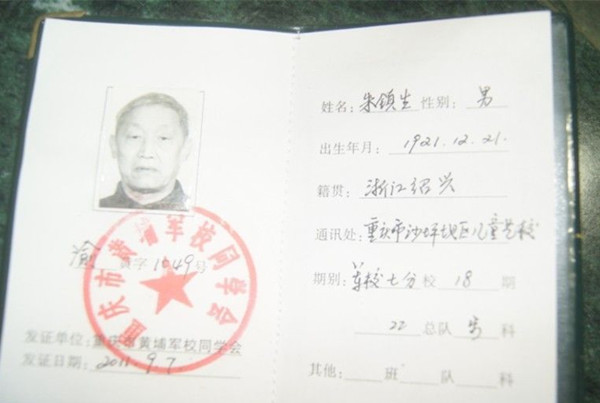 重庆市黄埔军校同学会
渝 黄字1649号
发证单位:重庆市黄埔军校同学会
发证日期:2011.9.7.
姓名:朱镇生 性别:男
出生年月:1921.12.21.
籍贯:浙江绍兴
通讯处:重庆市沙坪坝区儿童艺校
期别:军校七分校 18 期
22 总队 科
其他: 班 队 科